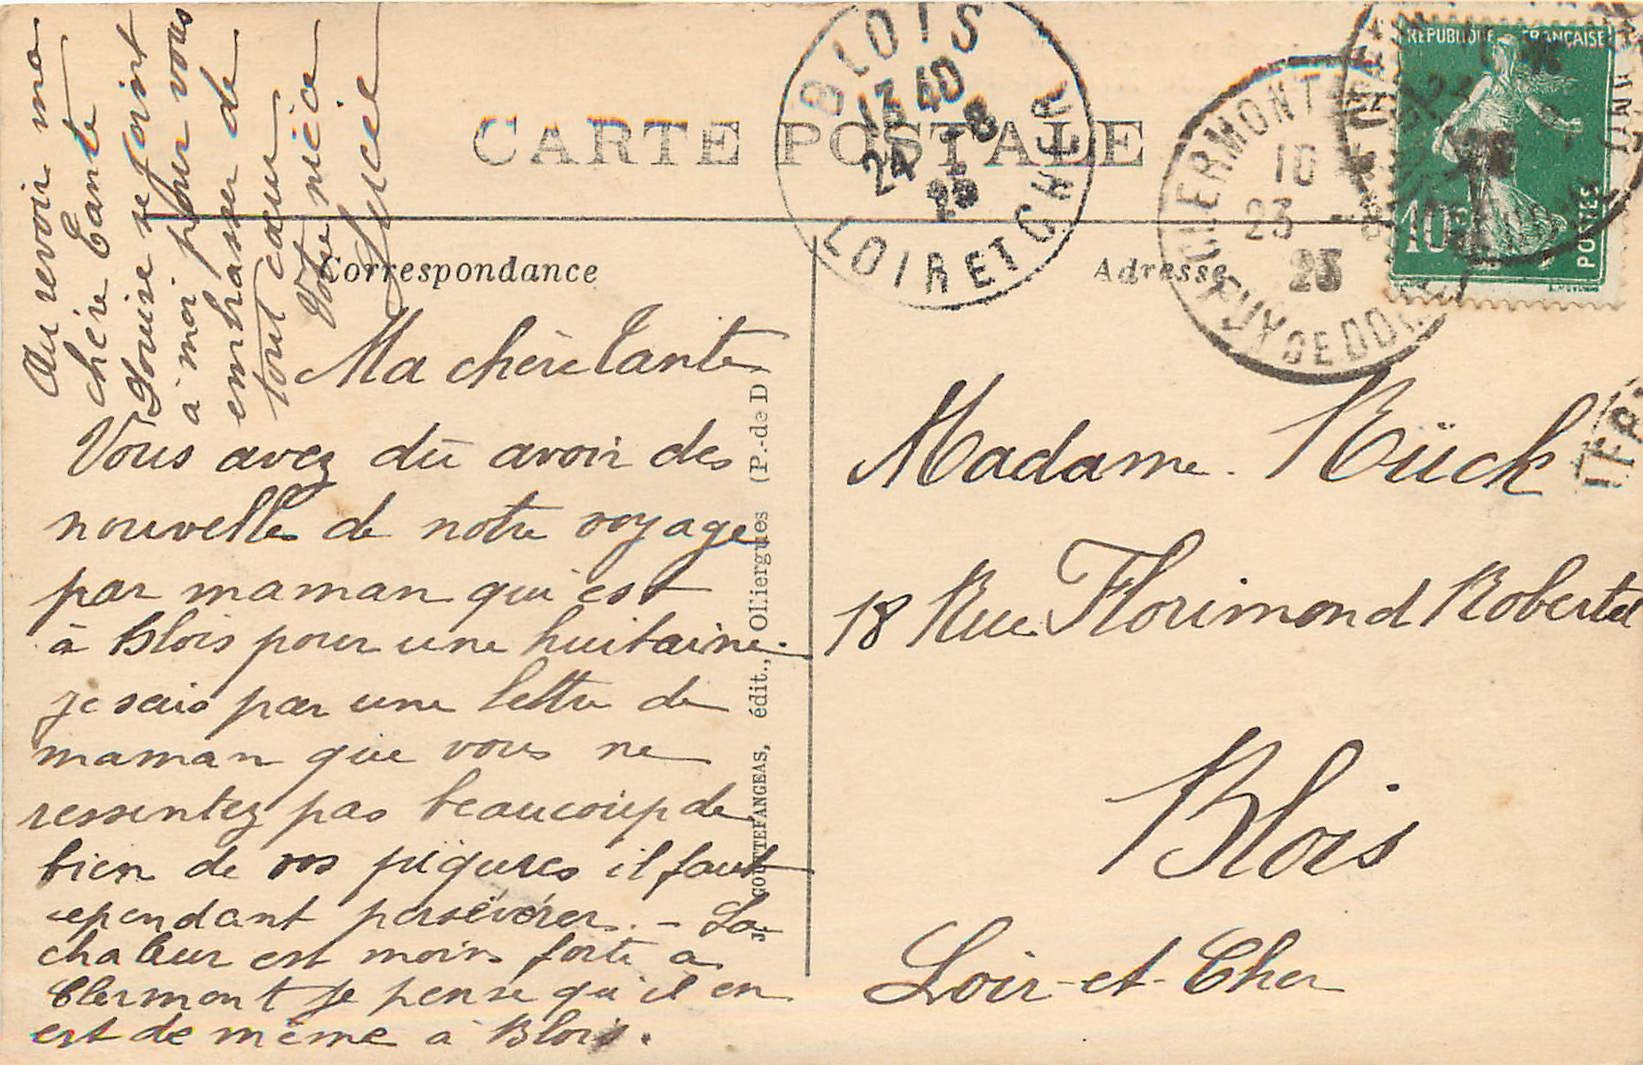 CARTE POSTALE
Correspondance
Adresse
BLOIS
13 40
24 - 8
23
LOIR ET CHER
CLERMONT
16
23 - 8
23
PUY DE DOME
REPUBLIQUE FRANÇAISE
10c
POSTES
Ma chère Tante
Vous avez dû avoir des
nouvelles de notre voyage
par maman qui est
à Blois pour une huitaine.
je sais par une lettre de
maman que vous ne
ressentez pas beaucoup de
bien de vos piqûres il faut
cependant persévérer. - La
chaleur est moins forte à
Clermont je pense qu'il en
est de même à Blois.
Au revoir ma
chère Tante
Louise se joint
à moi pour vous
embrasser de
tout cœur
Votre nièce
Lucie
J. GOUTTEFANGEAS, édit., Olliergues (P.-de D
Madame Rück
18 Rue Florimond Robertet
Blois
Loir-et-Cher